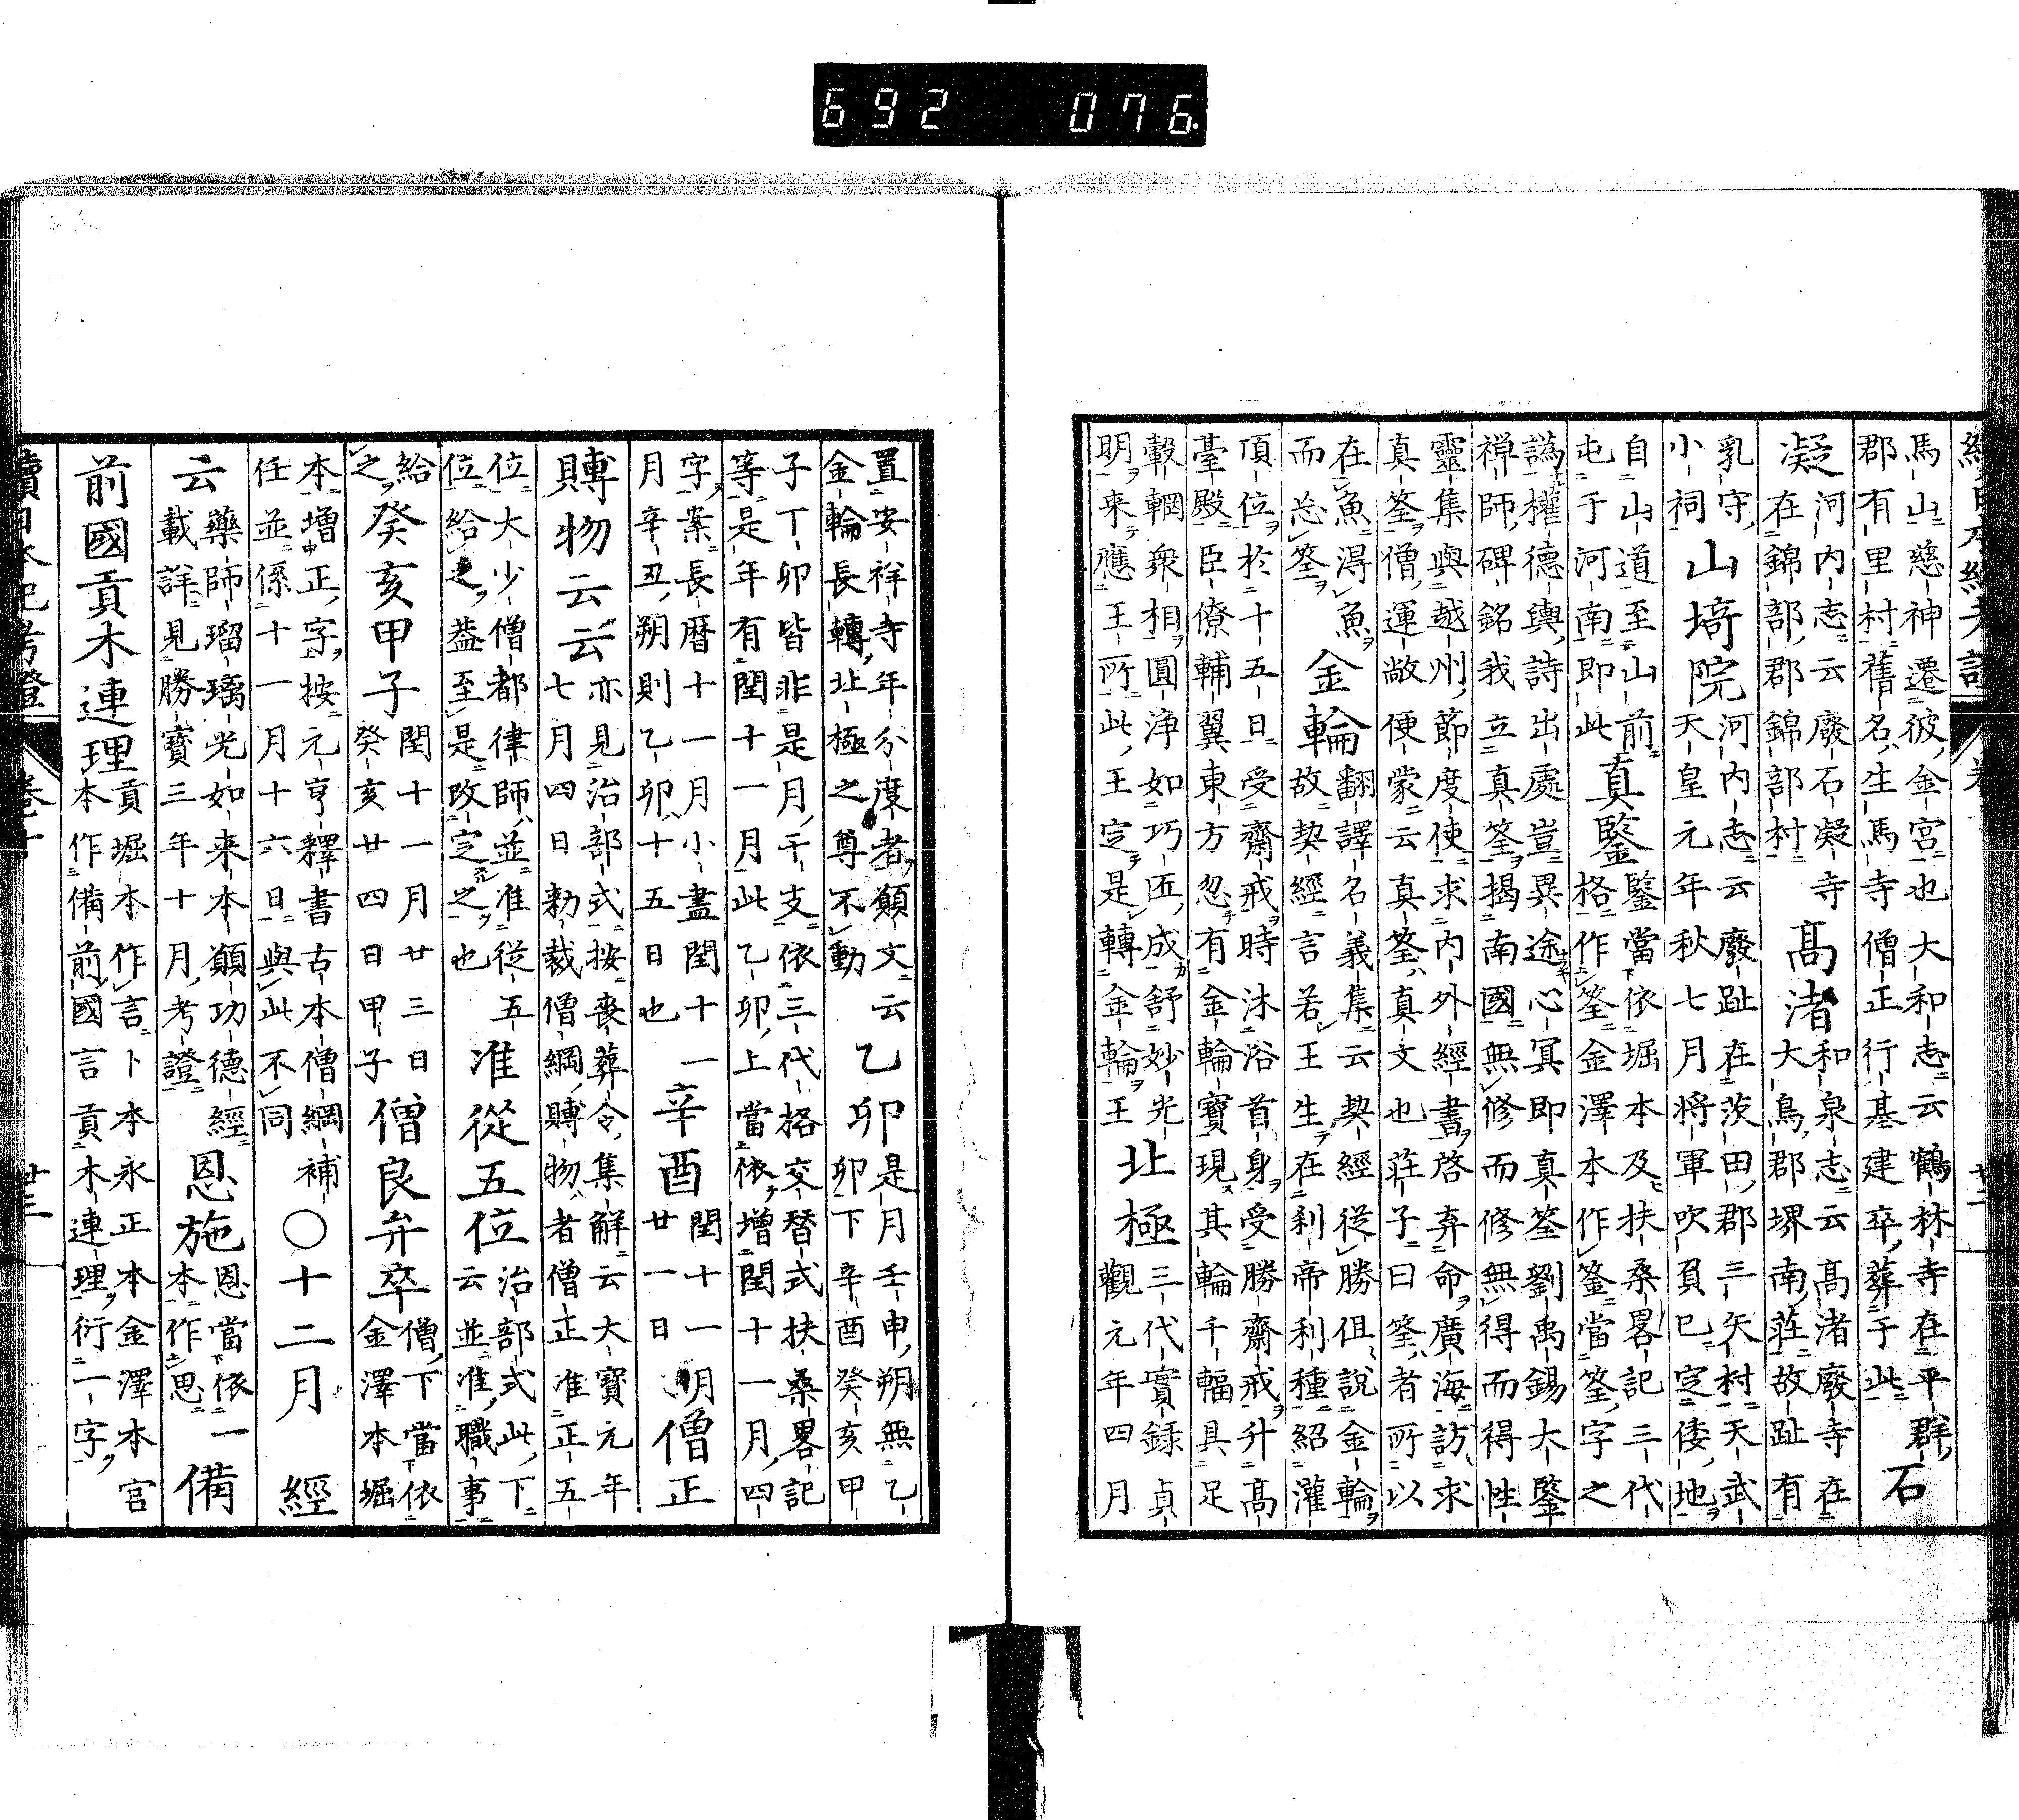 馬山慈神遷彼金宮也大和志云鶴林寺在平群
郡有里村舊名生馬寺僧正行基建卒葬于此
石
凝
河内志云廢石凝寺
在錦部郡錦部村
高渚
和泉志云高渚廢寺在
大鳥郡堺南莊故趾有
乳守
小祠
山埼院
河内志云廢趾在茨田郡三矢村天武
天皇元年秋七月将軍吹負已定倭地
自山道至山前
屯于河南即此
真鑒
鑒當依堀本及扶桑畧記三代
格作筌金澤本作筌當筌字之
譌權德輿詩出處豈異途心冥即真筌劉禹錫大鑒
禅師碑銘我立真筌揭南國無修而修無得而得性
靈集與越州節度使求内外經書啓弃命廣海訪求
真筌僧運敞便蒙云真筌真文也莊子曰筌者所以
在魚淂魚
而忘筌
金輪
翻譯名義集云契經從勝但說金輪
故契經言若王生在刹帝利種紹灌
頂位於十五日受齋戒時沐浴首身受勝齋戒升高
臺殿臣僚輔翼東方忽有金輪寶現其輪千輻具足
轂輞衆相圓浄如巧匠成舒妙光
明来應王所此王定是轉金輪王
北極
三代實録貞
觀元年四月
置安祥寺年分度者願文云
金輪長轉北極之尊不動
乙卯
是月壬申朔無乙
卯下辛酉癸亥甲
子丁卯皆非是月干支依三代格交替式扶桑畧記
等是年有閏十一月此乙卯上當依增閏十一月四
字案長暦十一月小盡閏十一
月辛丑朔則乙卯十五日也
辛酉
閏十一月
廿一日
僧正
賻物云云
亦見治部式按喪葬令集解云大寶元年
七月四日勅裁僧綱賻物者僧正准正五
位大少僧都律師並准從五
位給之葢至是改定之也
准從五位
治部式此下
云並准職事
給
之
癸亥甲子
閏十一月廿三日
癸亥廿四日甲子
僧良弁卒
僧下當依
金澤本堀
本增正字按元亨釋書古本僧綱補
任並係十一月十六日與此不同
〇十二月
經
云
藥師瑠璃光如来本願功德經
載詳見勝寶三年十月考證
恩施
恩當依一
本作思
備
前國貢木連理
貢堀本作言卜本永正本金澤本宮
本作備前國言貢木連理衍二字
692 076